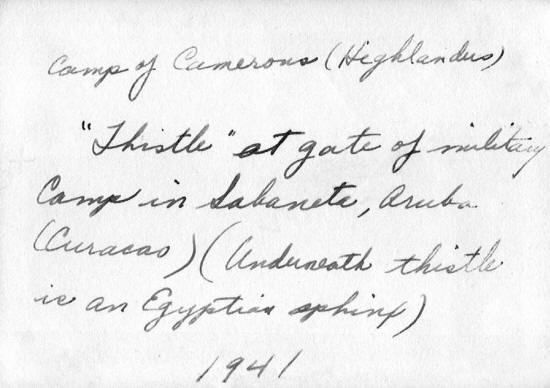 Camp of Camerons (Highlanders)
"Thistle" at gate of military
Camp in Sabaneta, Aruba
(Curacao) (Underneath thistle
is an Egyptian sphinx)
1941